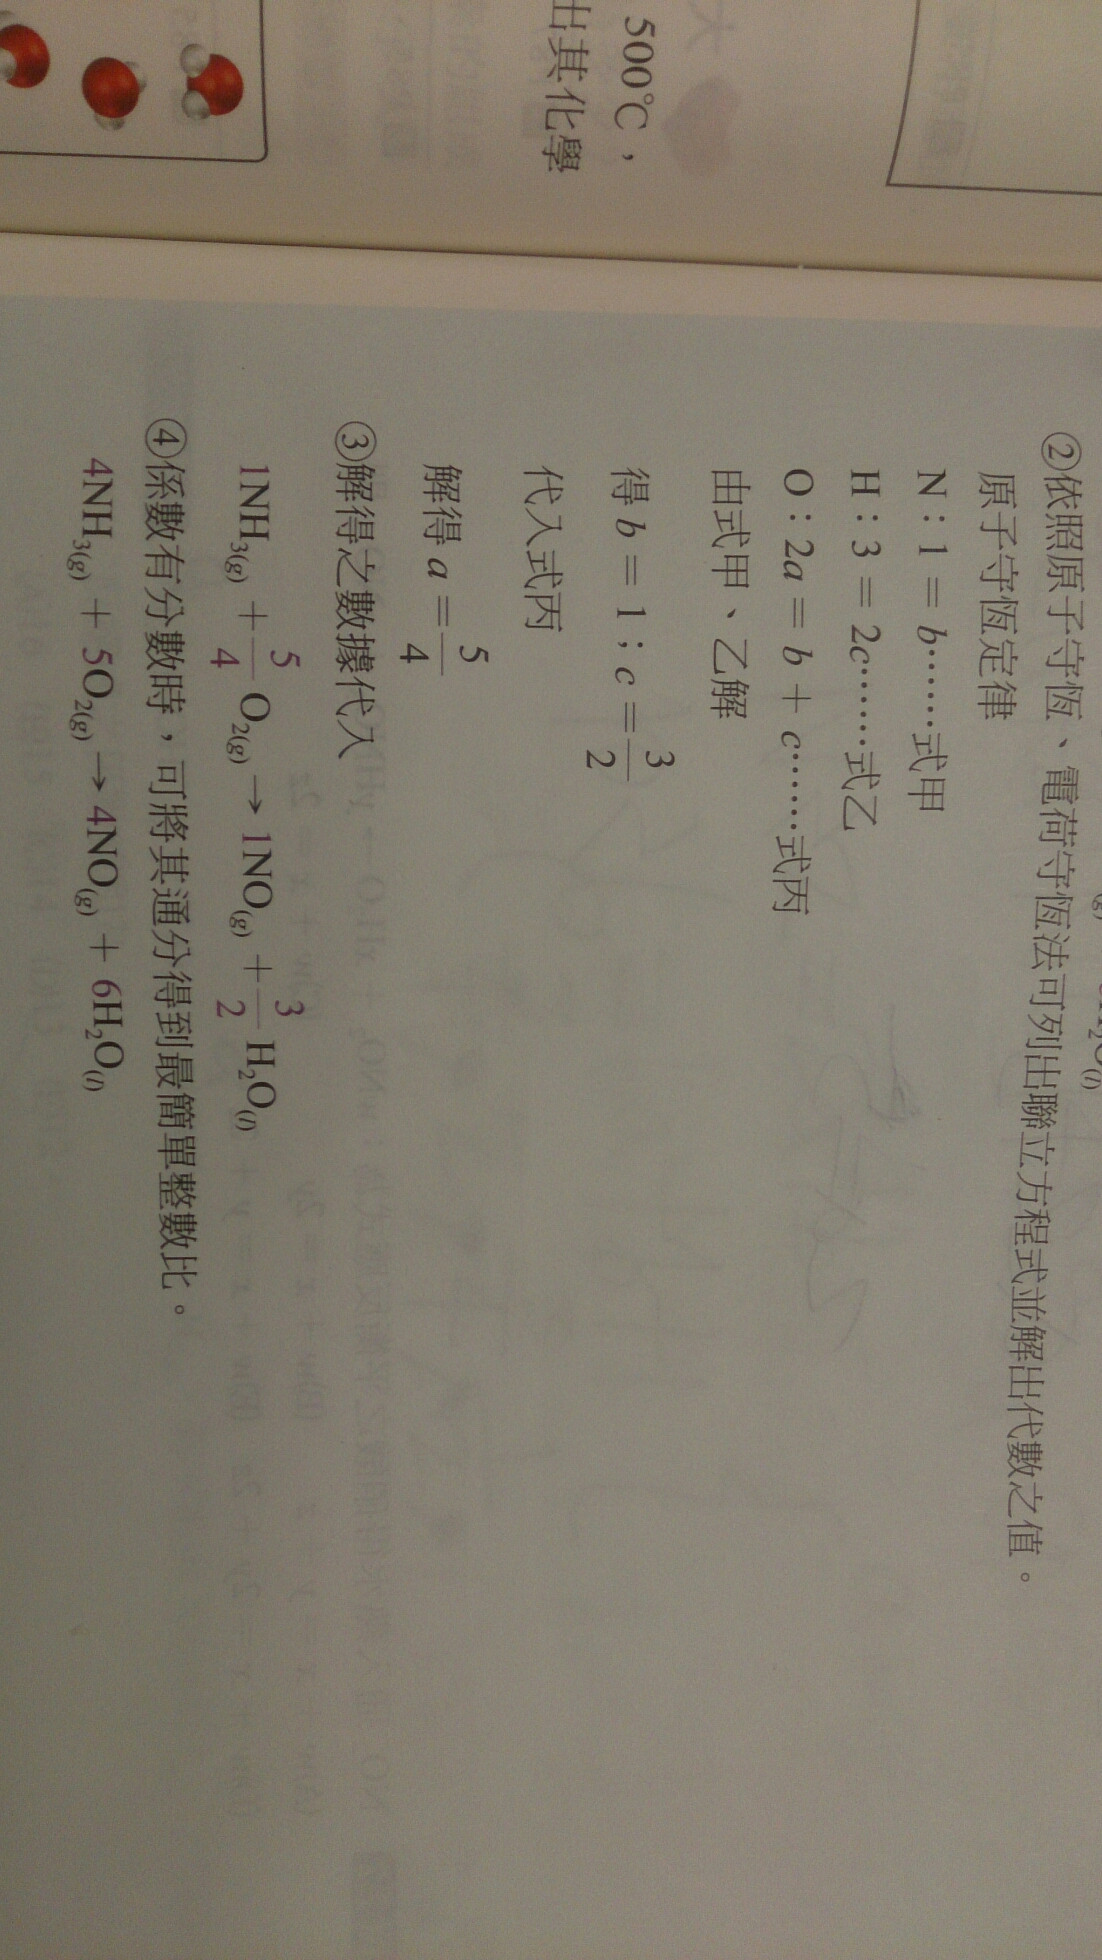 500℃，
出其化學
②依照原子守恆、電荷守恆法可列出聯立方程式並解出代數之值。
原子守恆定律
N：1 = b……式甲
H：3 = 2c……式乙
O：2a = b + c……式丙
由式甲、乙解
得 b = 1；c = 3/2
代入式丙
解得 a = 5/4
③解得之數據代入
1NH₃(g) + 5/4 O₂(g) → 1NO(g) + 3/2 H₂O(l)
④係數有分數時，可將其通分得到最簡單整數比。
4NH₃(g) + 5O₂(g) → 4NO(g) + 6H₂O(l)